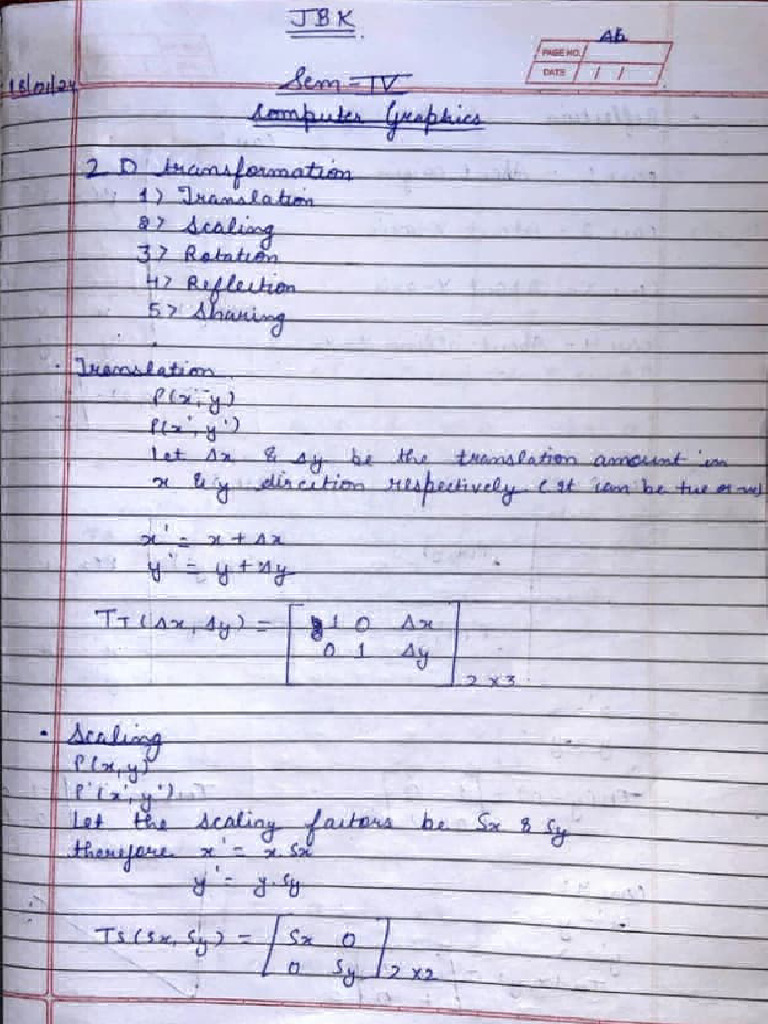 JBK
PAGE NO.
DATE / /
Sem - IV
Computer Graphics
2 D transformation
1) Translation
2) Scaling
3) Rotation
4) Reflection
5) Sharing
• Translation
P(x, y)
P(x', y')
Let Δx & Δy be the translation amount in
x & y direction respectively (It can be +ve or -ve)
x' = x + Δx
y' = y + Δy
TT(Δx, Δy) = [ 1 0 Δx
0 1 Δy ] 2x3
• Scaling
P(x, y)
P'(x', y')
Let the scaling factors be Sx & Sy
therefore x' = x.Sx
y' = y.Sy
TS(Sx, Sy) = [ Sx 0
0 Sy ] 2x2